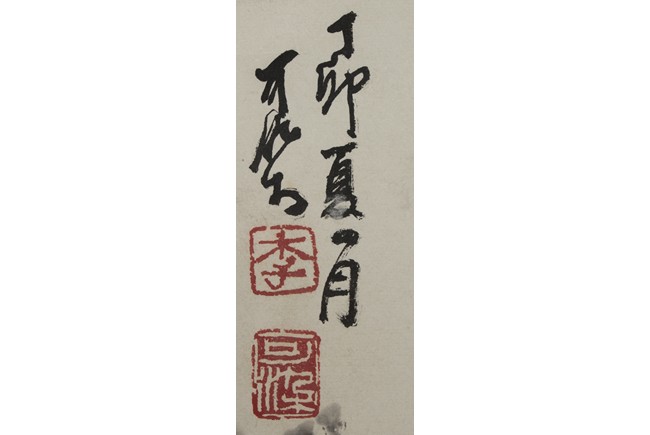 丁卯夏一月
可染
李
可染